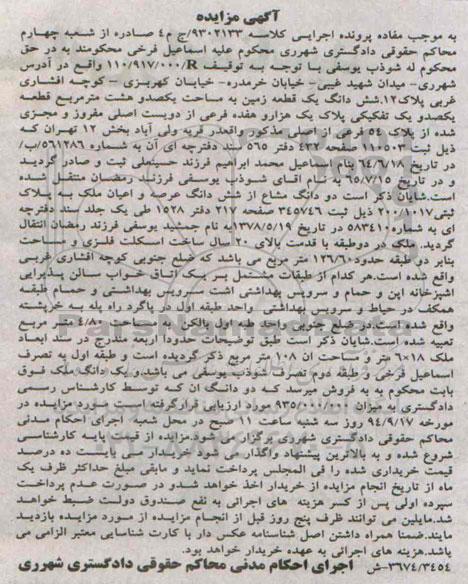 آگهی مزایده
به موجب مفاده پرونده اجرایی کلاسه ۹۳۰۲۱۳۳/ج م۴ صادره از شعبه چهارم
محاکم حقوقی دادگستری شهرری محکوم علیه اسماعیل فرخی محکومند به در حق
محکوم له شوذب یوسفی با توجه به توقیف ۱۱۰/۹۱۷/۰۰۰/R واقع در آدرس
شهرری- میدان شهید غیبی- خیابان خرمدره- خیابان کهریزی – کوچه افشاری
غربی پلاک۱۲.شش دانگ یک قطعه زمین به ماحت یکصدو هشت مترمربع قطعه
یکصدو یک تفکیکی پلاک یک هزارو هفده فرعی از دویست اصلی مفروز و مجزی
شده از پلاک ۵۴ فرعی از اصلی مذکور واقعدر قریه ولی آباد بخش ۱۲ تهران که
ذیل ثبت ۱۱۰۵۰۳ صفحه ۴۲۲ دفتر ۵۶۵ سند دفترچه ای آن به شماره ۵۶۱۲۸۶/ب/
در تاریخ ۶۴/۶/۱۸ بنام اسماعیل محمد ابراهیم فرزند حسینعلی ثبت و صادر گردید
و در تاریخ ۶۵/۷/۱۵ به نام اقای شوذب یوسفی فرزند رمضان منتقل شده
است.شایان ذکر است دو دانگ مشاع از شش دانگ عرصه و اعیان ملک به پلاک
ثبتی۲۰۰/۱۰۱۷ ذیل ثبت ۳۴۵۷۴۶ صفحه ۲۱۷ دفتر ۱۵۲۸ طی یک جلد سند دفترچه
ای به شماره ۵۸۳۴۱۰ در تاریخ ۱۳۷۸/۵/۱۹به نام جمشید یوسفی فرزند رمضان انتقال
گردید. ملک در دوطبقه با قدمت بالای ۲۰ سال ساخت اسکلت فلزی و مساحت
بنابر دو طبقه حدود ۱۲۶/۶۰ متر مربع می باشد که ضلع جنوبی کوچه افشاری غربی
واقع شده است.هر کدام از طبقات مشتمل بر یک اتاق خواب سالن پذیرایی
اشپزخانه اپن و حمام و سرویس بهداشتی اشت . سرویس بهداشتی و حمام طبقه
همکف در حیاط و سرویس بهداشتی واحد طبقه اول در پاگرد راه پله به خرپشته
واقع شده است.در ضلع جنوبی واحد طبقه اول بالکن به مساحت ۴/۸۰ متر مربع
تعبیه شده است.شایان ذکر است طبق توضیحات حدودا اربعه مندرج در سند ابعاد
ملک ۱۸×۶ متر و مساحت ان ۱۰۸ متر مربع ذکر گردیده است و طبقه اول به تصرف
اسماعیل فرخی و طبقه دوم تصرف شوذب یوسفی می باشدو یک دانگ ملک فوق
بابت محکوم به به فروش میرسد که دو دانگ ان که توسط کارشناس رسمی
دادگستری به میزان ۹۳۵۰۰۰/۰۰۰ مورد ارزیابی قرارگرفته است مورد مزایده در
مورخه ۹۴/۹/۱۷ روز سه شنبه ساعت ۱۱ صبح در محل شعبه اجرای احکام مدنی
محاکم حقوقی دادگستری شهرری برگزار می شود.مزایده از قیمت پایه کارشناسی
شروع شده و به بالاترین پیشنهاد واگذار می شود خریدار می بایست ده درصد
قیمت خریداری شده را فی المجلس پرداخت نماید و مابقی مبلغ حداکثر ظرف یک
ماه از تاریخ انجام مزایده از خریدار اخذ خواهد شدو در صورت عدم پرداخت
سپرده اولی پس از کسر هزینه های اجرائی به نفع صندوق دولت ضبط خواهد
شد.مایلین می توانند ظرف پنج روز قبل از انجام مزایده از مورد مزایده بازدید
مایند.ضمنا همراه داشتن اصل شناسنامه عکس دار یا کارت شناسایی معتبر الزامی می
باشد.هزینه های اجرائی به عهده خریدار خواهد بود.
۳۶۷۴/۳۴۵۴-ش اجرای احکام مدنی محاکم حقوقی دادگستری شهرری